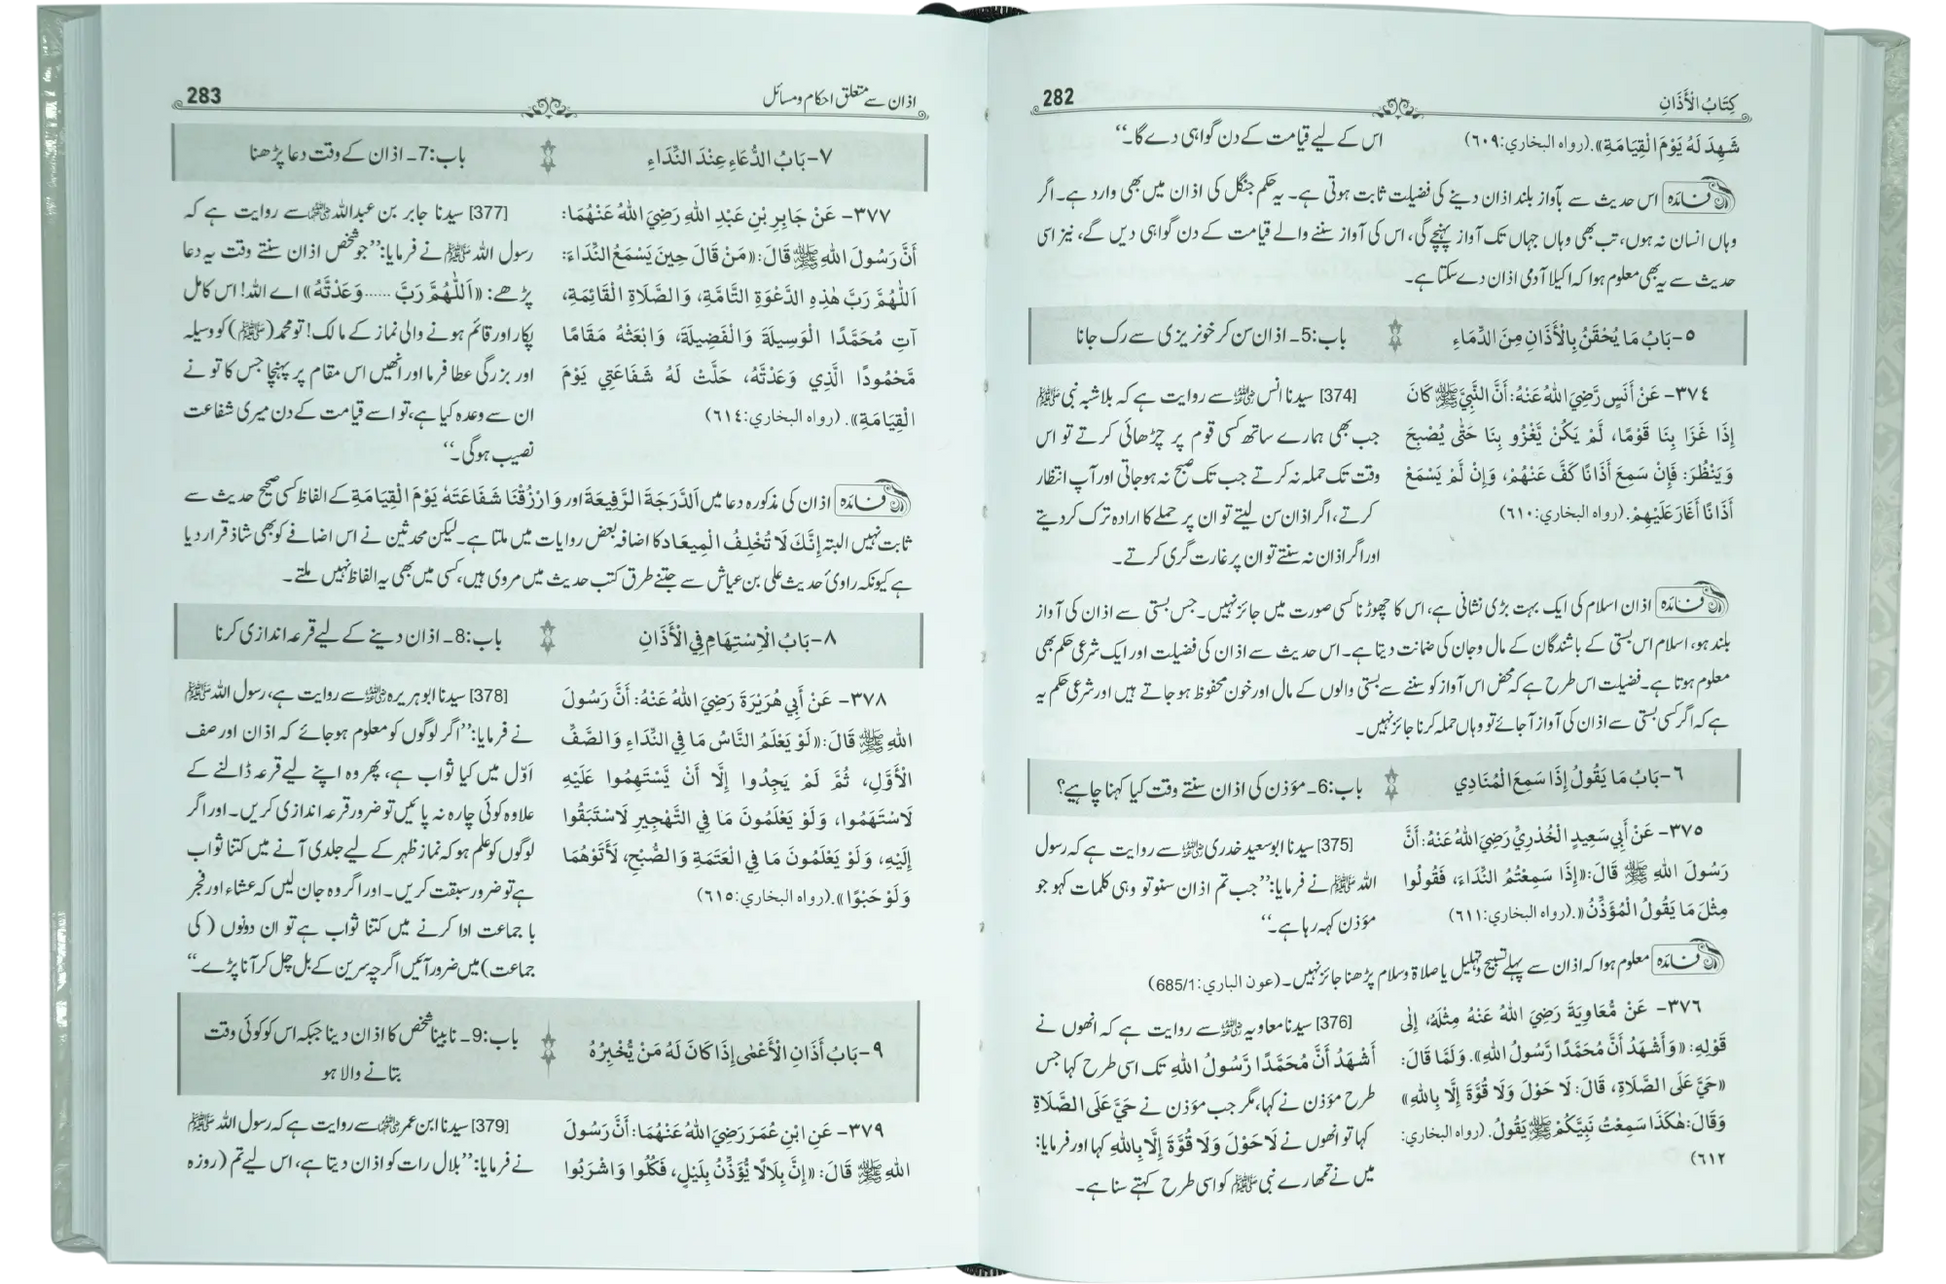 كِتَابُ الْأَذَانِ 282
شَهِدَ لَهُ يَوْمَ الْقِيَامَةِ». (رواه البخاري: ٦٠٩)
اس کے لیے قیامت کے دن گواہی دے گا۔‘‘
فائدہ اس حدیث سے بآواز بلند اذان دینے کی فضیلت ثابت ہوتی ہے۔ یہ حکم جنگل کی اذان میں بھی وارد ہے۔ اگر
وہاں انسان نہ ہوں، تب بھی وہاں جہاں تک آواز پہنچے گی، اس کی آواز سننے والے قیامت کے دن گواہی دیں گے، نیز اسی
حدیث سے یہ بھی معلوم ہوا کہ اکیلا آدمی اذان دے سکتا ہے۔
٥- بَابُ مَا يُحْقَنُ بِالْأَذَانِ مِنَ الدِّمَاءِ
باب:5۔ اذان سن کر خونریزی سے رک جانا
٣٧٤- عَنْ أَنَسٍ رَّضِيَ اللهُ عَنْهُ: أَنَّ النَّبِيَّ ﷺ كَانَ
إِذَا غَزَا بِنَا قَوْمًا، لَمْ يَكُنْ يَّغْزُو بِنَا حَتَّى يُصْبِحَ
وَيَنْظُرَ: فَإِنْ سَمِعَ أَذَانًا كَفَّ عَنْهُمْ، وَإِنْ لَّمْ يَسْمَعْ
أَذَانًا أَغَارَ عَلَيْهِمْ. (رواه البخاري: ٦١٠)
[374] سیدنا انس ؓ سے روایت ہے کہ بلاشبہ نبی ﷺ
جب بھی ہمارے ساتھ کسی قوم پر چڑھائی کرتے تو اس
وقت تک حملہ نہ کرتے جب تک صبح نہ ہو جاتی اور آپ انتظار
کرتے، اگر اذان سن لیتے تو ان پر حملے کا ارادہ ترک کر دیتے
اور اگر اذان نہ سنتے تو ان پر غارت گری کرتے۔
فائدہ اذان اسلام کی ایک بہت بڑی نشانی ہے، اس کا چھوڑنا کسی صورت میں جائز نہیں۔ جس بستی سے اذان کی آواز
بلند ہو، اسلام اس بستی کے باشندگان کے مال و جان کی ضمانت دیتا ہے۔ اس حدیث سے اذان کی فضیلت اور ایک شرعی حکم بھی
معلوم ہوتا ہے۔ فضیلت اس طرح ہے کہ محض اس آواز کو سننے سے بستی والوں کے مال اور خون محفوظ ہو جاتے ہیں اور شرعی حکم یہ
ہے کہ اگر کسی بستی سے اذان کی آواز آ جائے تو وہاں حملہ کرنا جائز نہیں۔
٦- بَابُ مَا يَقُولُ إِذَا سَمِعَ الْمُنَادِي
باب:6۔ مؤذن کی اذان سنتے وقت کیا کہنا چاہیے؟
٣٧٥- عَنْ أَبِي سَعِيدٍ الْخُدْرِيِّ رَضِيَ اللهُ عَنْهُ: أَنَّ
رَسُولَ اللهِ ﷺ قَالَ: «إِذَا سَمِعْتُمُ النِّدَاءَ، فَقُولُوا
مِثْلَ مَا يَقُولُ الْمُؤَذِّنُ». (رواه البخاري: ٦١١)
[375] سیدنا ابو سعید خدری ؓ سے روایت ہے کہ رسول
اللہ ﷺ نے فرمایا: ’’جب تم اذان سنو تو وہی کلمات کہو جو
مؤذن کہہ رہا ہے۔‘‘
فائدہ معلوم ہوا کہ اذان سے پہلے تسبیح و تہلیل یا صلاۃ و سلام پڑھنا جائز نہیں۔ (عون الباري: 685/1)
٣٧٦- عَنْ مُّعَاوِيَةَ رَضِيَ اللهُ عَنْهُ مِثْلَهُ، إِلَى
قَوْلِهِ: «وَأَشْهَدُ أَنَّ مُحَمَّدًا رَّسُولُ اللهِ». وَلَمَّا قَالَ:
«حَيَّ عَلَى الصَّلَاةِ، قَالَ: لَا حَوْلَ وَلَا قُوَّةَ إِلَّا بِاللهِ»
وَقَالَ: هٰكَذَا سَمِعْتُ نَبِيَّكُمْ ﷺ يَقُولُ. (رواه البخاري:
٦١٢)
[376] سیدنا معاویہ ؓ سے روایت ہے کہ انھوں نے
أَشْهَدُ أَنَّ مُحَمَّدًا رَّسُولُ اللهِ تک اسی طرح کہا جس
طرح مؤذن نے کہا، مگر جب مؤذن نے حَيَّ عَلَى الصَّلَاةِ
کہا تو انھوں نے لَا حَوْلَ وَلَا قُوَّةَ إِلَّا بِاللهِ کہا اور فرمایا:
میں نے تمھارے نبی ﷺ کو اسی طرح کہتے سنا ہے۔
اذان سے متعلق احکام و مسائل 283
٧- بَابُ الدُّعَاءِ عِنْدَ النِّدَاءِ
باب:7۔ اذان کے وقت دعا پڑھنا
٣٧٧- عَنْ جَابِرِ بْنِ عَبْدِ اللهِ رَضِيَ اللهُ عَنْهُمَا:
أَنَّ رَسُولَ اللهِ ﷺ قَالَ: «مَنْ قَالَ حِينَ يَسْمَعُ النِّدَاءَ:
اَللّٰهُمَّ رَبَّ هٰذِهِ الدَّعْوَةِ التَّامَّةِ، وَالصَّلَاةِ الْقَائِمَةِ،
آتِ مُحَمَّدًا الْوَسِيلَةَ وَالْفَضِيلَةَ، وَابْعَثْهُ مَقَامًا
مَّحْمُودًا الَّذِي وَعَدْتَّهُ، حَلَّتْ لَهُ شَفَاعَتِي يَوْمَ
الْقِيَامَةِ». (رواه البخاري: ٦١٤)
[377] سیدنا جابر بن عبداللہ ؓ سے روایت ہے کہ
رسول اللہ ﷺ نے فرمایا: ’’جو شخص اذان سنتے وقت یہ دعا
پڑھے: «اَللّٰهُمَّ رَبَّ ...... وَعَدْتَّهُ» اے اللہ! اس کامل
پکار اور قائم ہونے والی نماز کے مالک! تو محمد (ﷺ) کو وسیلہ
اور بزرگی عطا فرما اور انھیں اس مقام پر پہنچا جس کا تو نے
ان سے وعدہ کیا ہے، تو اسے قیامت کے دن میری شفاعت
نصیب ہوگی۔‘‘
فائدہ اذان کی مذکورہ دعا میں اَلدَّرَجَةَ الرَّفِيعَةَ اور وَارْزُقْنَا شَفَاعَتَهٗ يَوْمَ الْقِيَامَةِ کے الفاظ کسی صحیح حدیث سے
ثابت نہیں البتہ إِنَّكَ لَا تُخْلِفُ الْمِيعَاد کا اضافہ بعض روایات میں ملتا ہے۔ لیکن محدثین نے اس اضافے کو بھی شاذ قرار دیا
ہے کیونکہ راویٔ حدیث علی بن عیاش سے جتنے طرق کتب حدیث میں مروی ہیں، کسی میں بھی یہ الفاظ نہیں ملتے۔
٨- بَابُ الْاِسْتِهَامِ فِي الْأَذَانِ
باب:8۔ اذان دینے کے لیے قرعہ اندازی کرنا
٣٧٨- عَنْ أَبِي هُرَيْرَةَ رَضِيَ اللهُ عَنْهُ: أَنَّ رَسُولَ
اللهِ ﷺ قَالَ: «لَوْ يَعْلَمُ النَّاسُ مَا فِي النِّدَاءِ وَالصَّفِّ
الْأَوَّلِ، ثُمَّ لَمْ يَجِدُوا إِلَّا أَنْ يَّسْتَهِمُوا عَلَيْهِ
لَاسْتَهَمُوا، وَلَوْ يَعْلَمُونَ مَا فِي التَّهْجِيرِ لَاسْتَبَقُوا
إِلَيْهِ، وَلَوْ يَعْلَمُونَ مَا فِي الْعَتَمَةِ وَالصُّبْحِ، لَأَتَوْهُمَا
وَلَوْ حَبْوًا». (رواه البخاري: ٦١٥)
[378] سیدنا ابو ہریرہ ؓ سے روایت ہے، رسول اللہ ﷺ
نے فرمایا: ’’اگر لوگوں کو معلوم ہو جائے کہ اذان اور صف
اوّل میں کیا ثواب ہے، پھر وہ اپنے لیے قرعہ ڈالنے کے
علاوہ کوئی چارہ نہ پائیں تو ضرور قرعہ اندازی کریں۔ اور اگر
لوگوں کو علم ہو کہ نماز ظہر کے لیے جلدی آنے میں کتنا ثواب
ہے تو ضرور سبقت کریں۔ اور اگر وہ جان لیں کہ عشاء اور فجر
با جماعت ادا کرنے میں کتنا ثواب ہے تو ان دونوں (کی
جماعت) میں ضرور آئیں اگرچہ سرین کے بل چل کر آنا پڑے۔‘‘
٩- بَابُ أَذَانِ الْأَعْمٰى إِذَا كَانَ لَهُ مَنْ يُّخْبِرُهُ
باب:9۔ نابینا شخص کا اذان دینا جبکہ اس کو کوئی وقت
بتانے والا ہو
٣٧٩- عَنِ ابْنِ عُمَرَ رَضِيَ اللهُ عَنْهُمَا: أَنَّ رَسُولَ
اللهِ ﷺ قَالَ: «إِنَّ بِلَالًا يُّؤَذِّنُ بِلَيْلٍ، فَكُلُوا وَاشْرَبُوا
[379] سیدنا ابن عمر ؓ سے روایت ہے کہ رسول اللہ ﷺ
نے فرمایا: ’’بلال رات کو اذان دیتا ہے، اس لیے تم (روزہ